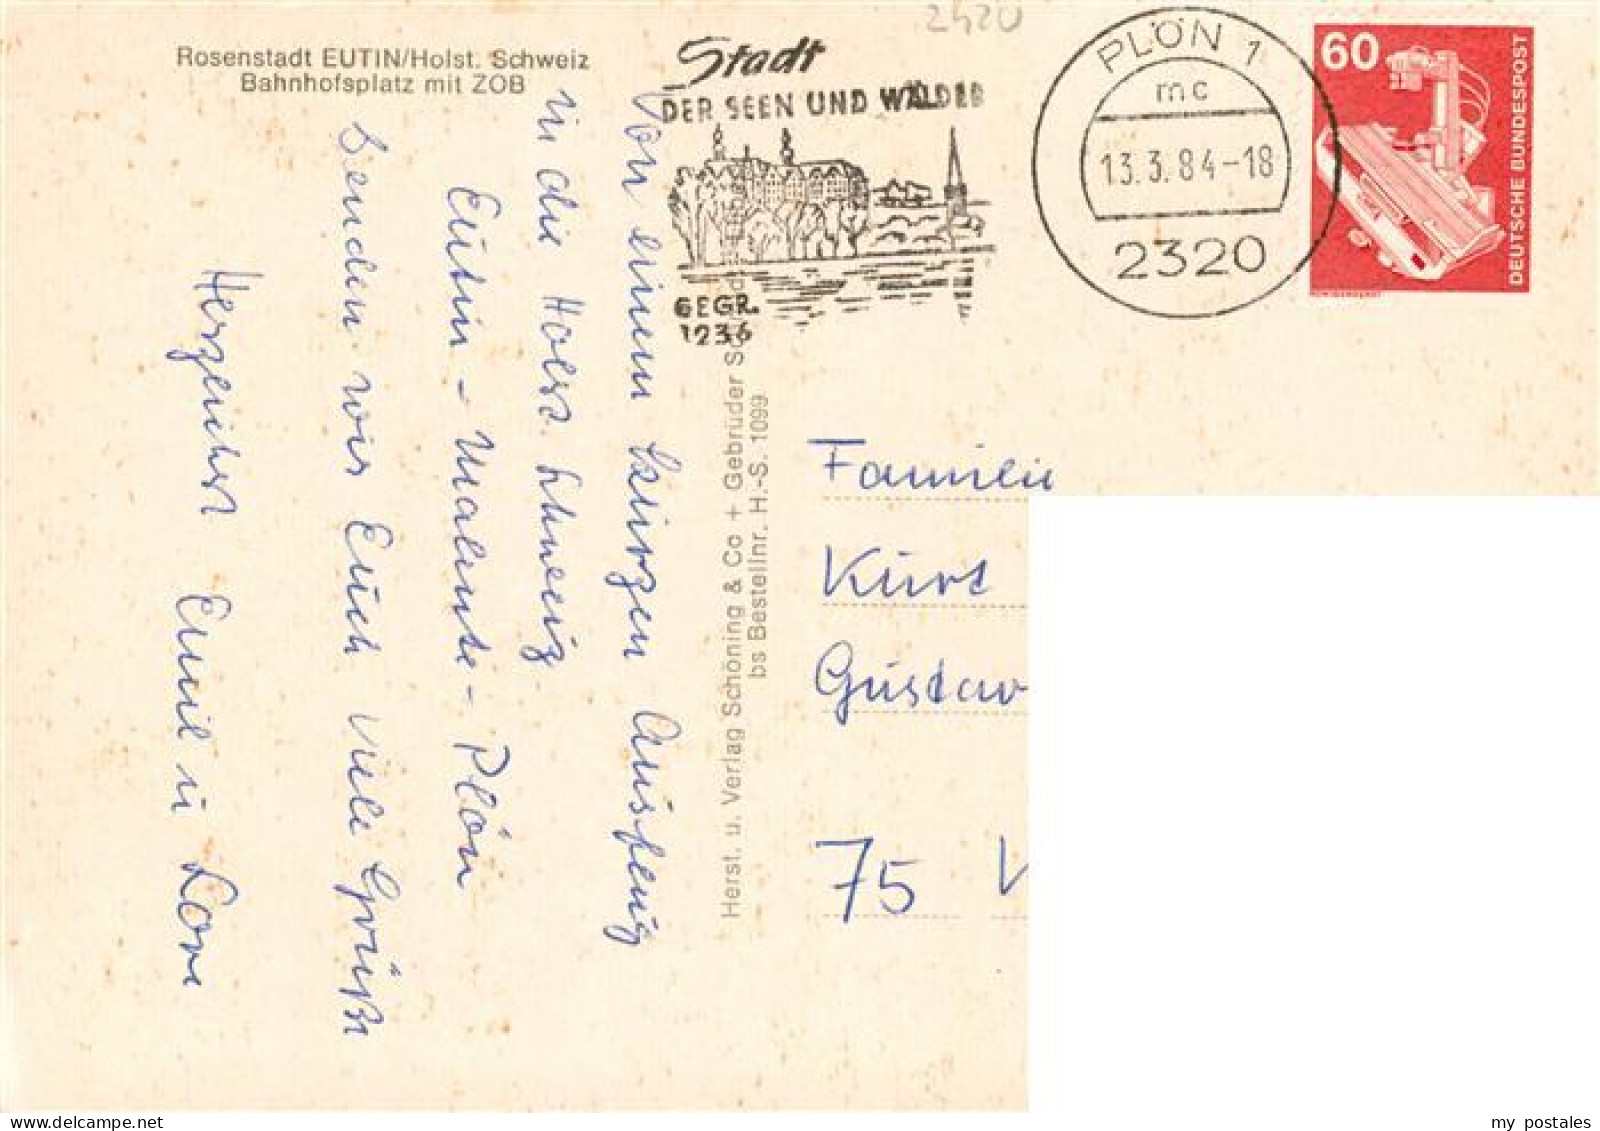 Rosenstadt EUTIN/Holst. Schweiz
Bahnhofsplatz mit ZOB
2420
Stadt
DER SEEN UND WÄLDER
GEGR.
1236
PLÖN 1
mc
13.3.84-18
2320
60
DEUTSCHE BUNDESPOST
Von einem kurzen Ausflug
in die Holst. Schweiz
Eutin - Malente - Plön
senden wir Euch viele Grüße
Herzlichst Emil u Lore
Herst. u. Verlag Schöning & Co + Gebrüder
bs Bestellnr. H.-S. 1099
Familie
Kurt
Gustav
75
my postales